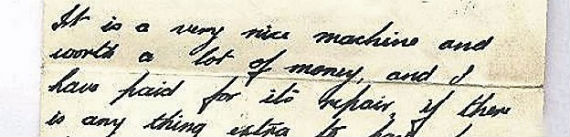 It is a very nice machine and
worth a lot of money, and I
have paid for its repair, if there
is any thing extra to